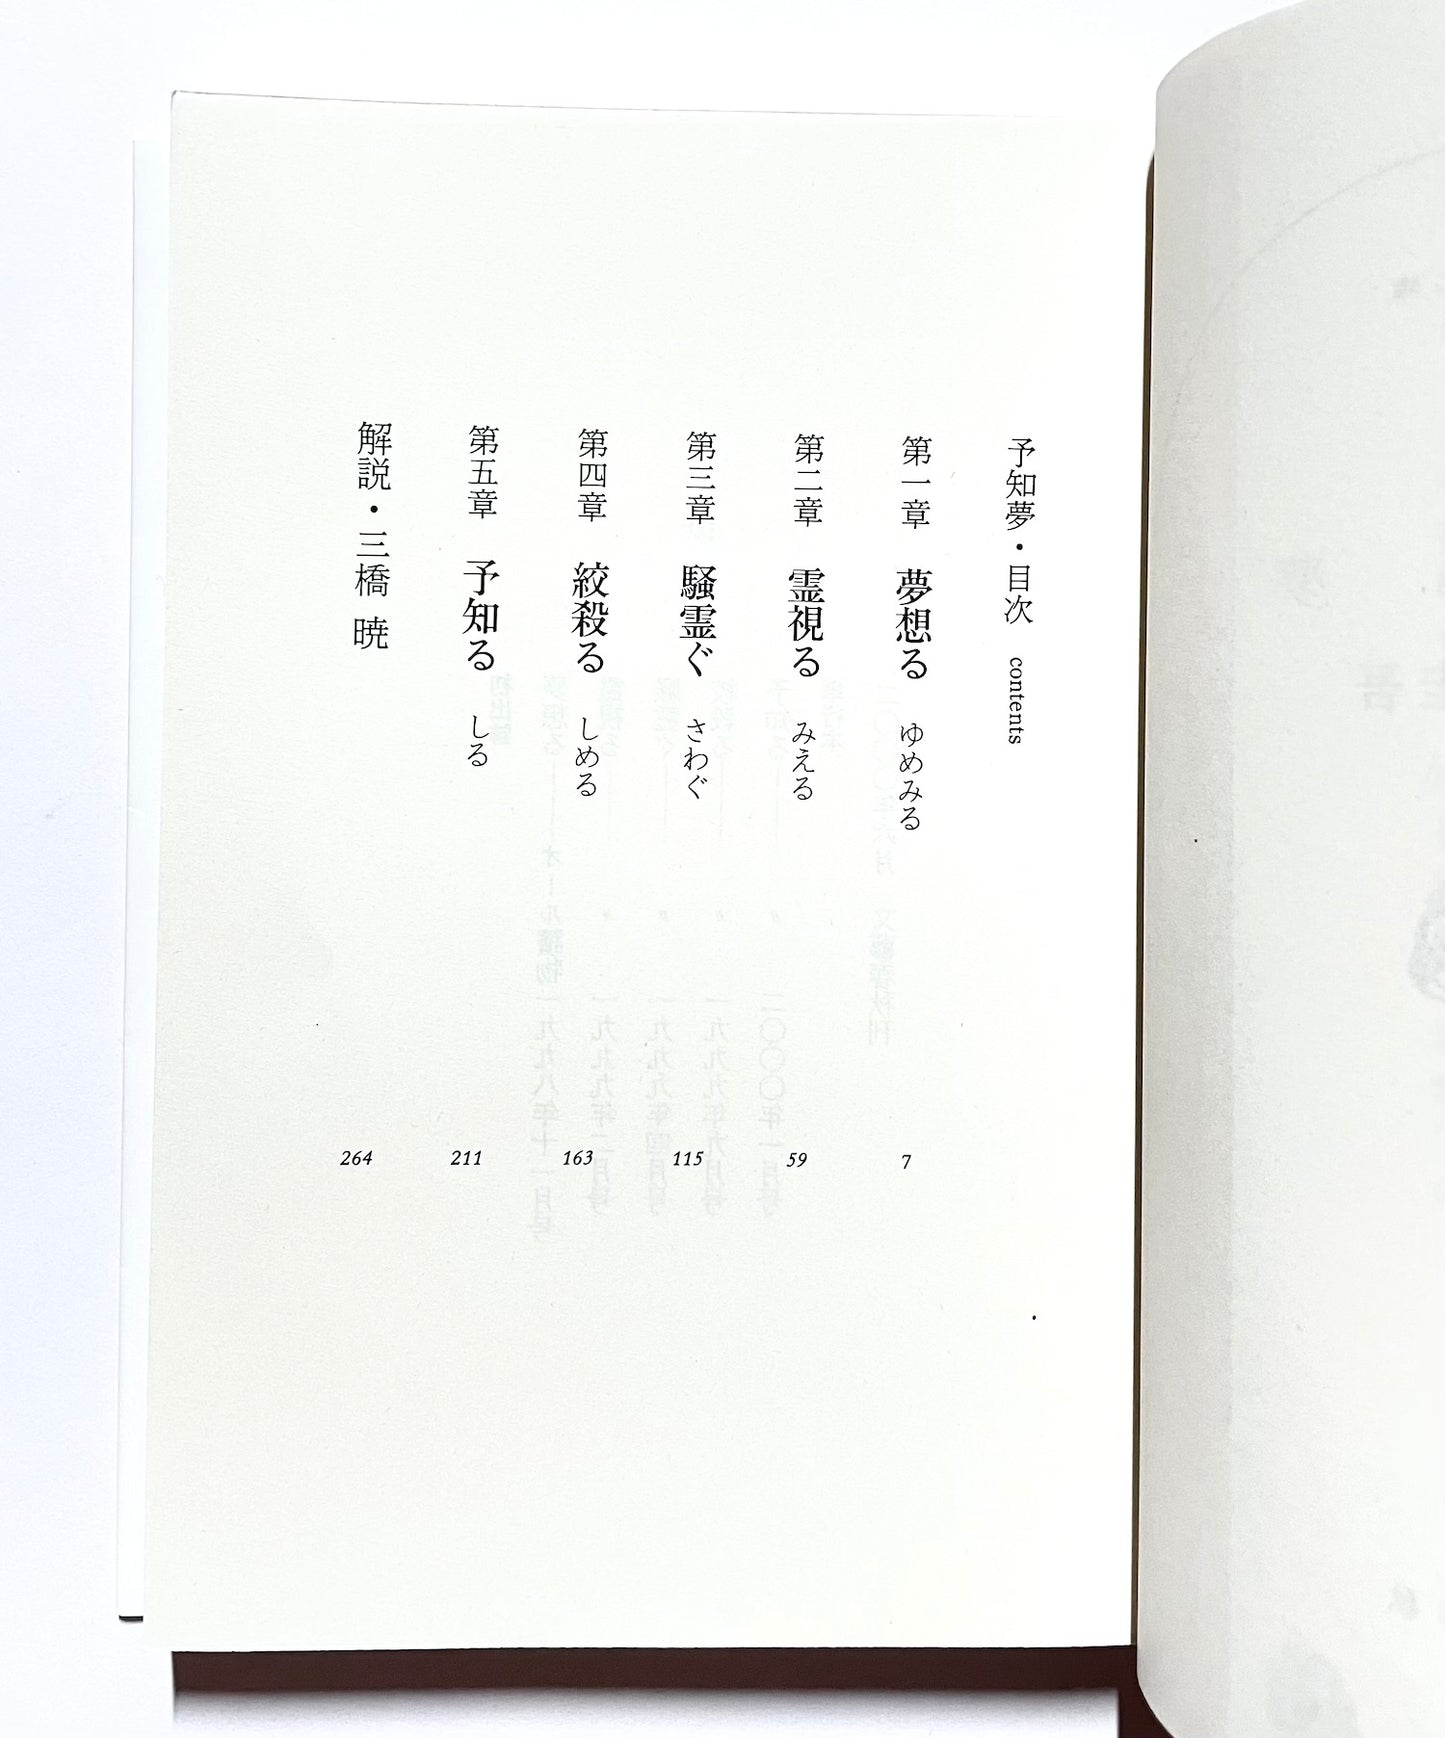 予知夢・目次　contents
第一章　夢想る　ゆめみる　7
第二章　霊視る　みえる　59
第三章　騒霊ぐ　さわぐ　115
第四章　絞殺る　しめる　163
第五章　予知る　しる　211
解説・三橋 暁　264